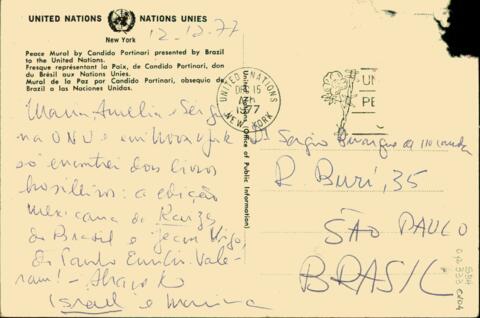 UNITED NATIONS NATIONS UNIES
New York
12-12-77
Peace Mural by Candido Portinari presented by Brazil
to the United Nations.
Fresque représentant la Paix, de Candido Portinari, don
du Brésil aux Nations Unies.
Mural de la Paz por Candido Portinari, obsequio de
Brasil a las Naciones Unidas.
United Nations Office of Public Information
UNITED NATIONS
DEC 15
1977
NEW YORK
UN
PE
Maria Amelia e Sérgio
na ONU e em Nova York
só encontrei dois livros
brasileiros: a edição
mexicana do Raizes
do Brasil e Jean Vigo,
de Paulo Emilio. Vale-
ram! - Abraço do
Israel e
Sergio Buarque de Holanda
R. Buri, 35
SÃO PAULO
BRASIL